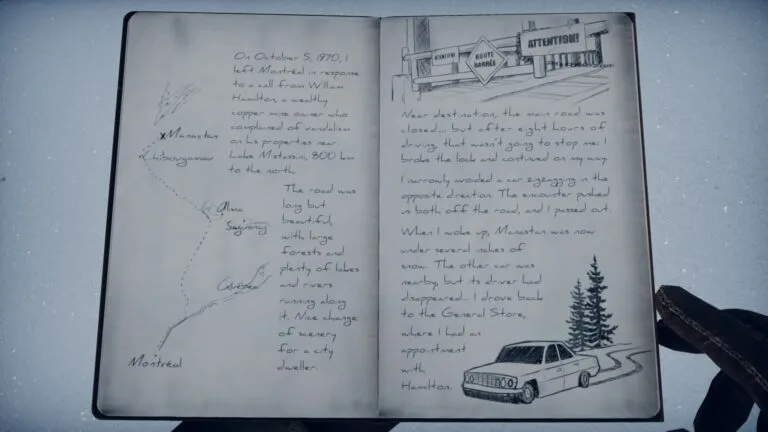 On October 5, 1970, I
left Montréal in response
to a call from William
Hamilton, a wealthy
copper mine owner who
complained of vandalism
on his properties near
Lake Mistassini, 800 km
to the north.
The road was
long but
beautiful,
with large
forests and
plenty of lakes
and rivers
running along
it. Nice change
of scenery
for a city
dweller.
x Manastan
Chibougamau
Alma
Saguenay
Québec
Montréal
ROUTE
BARRÉE
ATTENTION!
Near destination, the main road was
closed... but after eight hours of
driving, that wasn't going to stop me: I
broke the lock and continued on my way.
I narrowly avoided a car zigzagging in the
opposite direction. The encounter pushed
us both off the road, and I passed out.
When I woke up, Manastan was now
under several inches of
snow. The other car was
nearby, but its driver had
disappeared... I drove back
to the General Store,
where I had an
appointment
with
Hamilton.